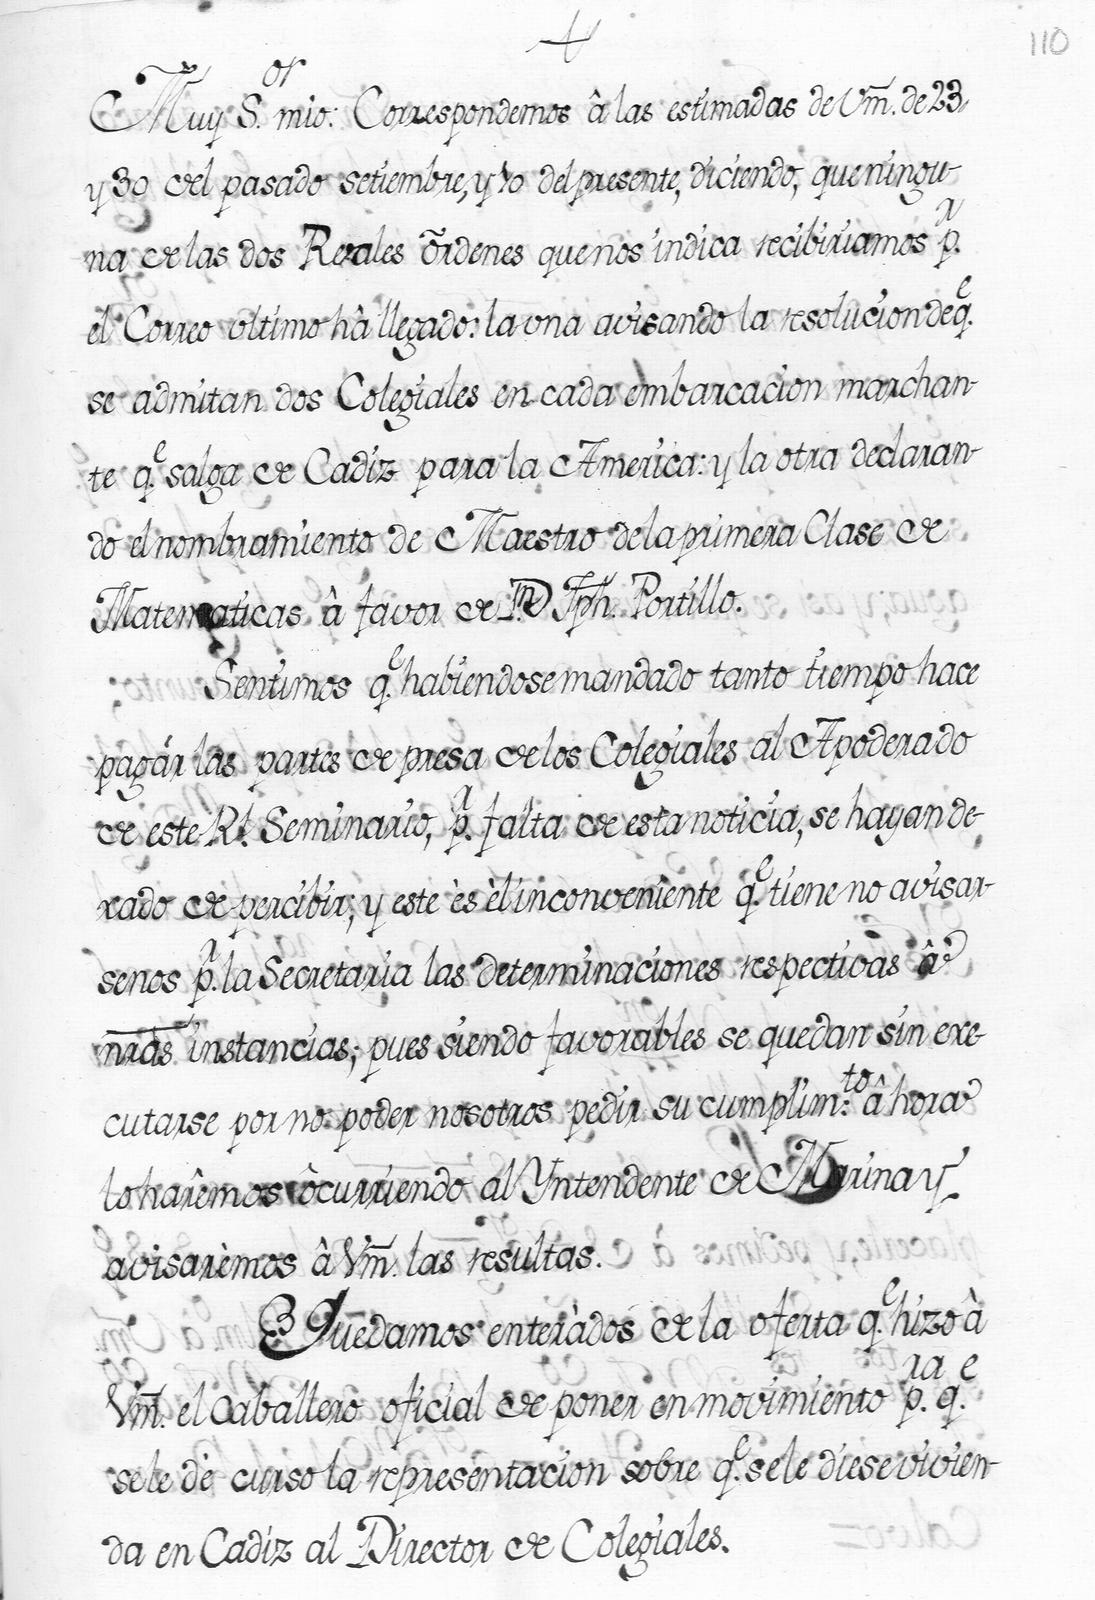 110
Muy S.or mio: Correspondemos â las estimadas de Vm. de 23,
y 30 del pasado setiembre, y 10 del presente, diciendo, que ningu-
na de las dos Reales õrdenes que nos indica recibiriamos p.r
el Correo ultimo hâ llegado: la vna avisando la resolucion de q.e
se admitan dos Colegiales en cada embarcacion marchan-
te q.e salga de Cadiz para la America: y la otra declaran-
do el nombramiento de Maestro de la primera Clase de
Matematicas â favor de D.n Jph. Portillo.
Sentimos q.e habiendose mandado tanto tiempo hace
pagár las partes de presa de los Colegiales al Apoderado
de este Rl. Seminario, p.r falta de esta noticia, se hayan de-
xado de percibir; y este ès èl inconveniente q.e tiene no avisar-
senos p.r la Secretaria las determinaciones respectivas â
nrãs instancias; pues siendo favorables se quedan sin exe-
cutarse por no poder nosotros pedir su cumplim.to: âhora
lo harêmos ôcurriendo al Yntendente de Marina y
avisarèmos â Vm̃. las resultas.
Quedamos enteràdos de la oferta q.e hizo â
Vm̃. el Caballero oficial de poner en movimiento p.ra q.e
se le dè curso la representacion sobre q.e se le diese vivien-
da en Cadiz al Director de Colegiales.